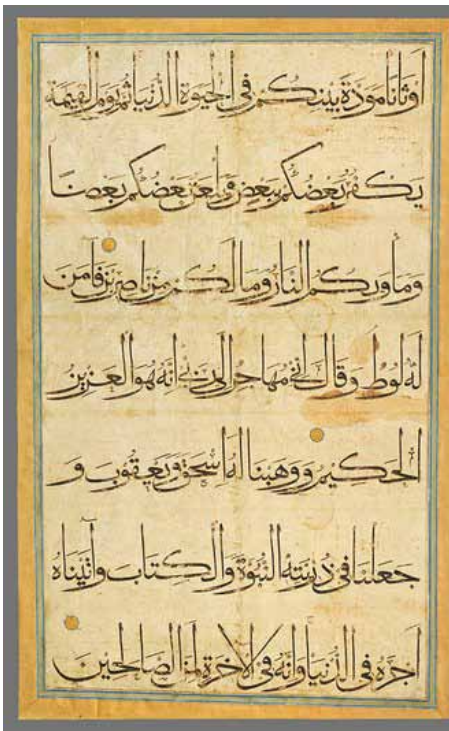 أوثانا مودة بينكم في الحيوة الدنيا ثم يوم القيمة
يكفر بعضكم ببعض ويلعن بعضكم بعضا
ومأويكم النار وما لكم من ناصرين فامن
له لوط وقال انى مهاجر الى ربى انه هو العزيز
الحكيم ووهبنا له اسحق ويعقوب و
جعلنا فى ذريته النبوة والكتاب وآتيناه
اجره فى الدنيا وانه فى الاخرة لمن الصالحين